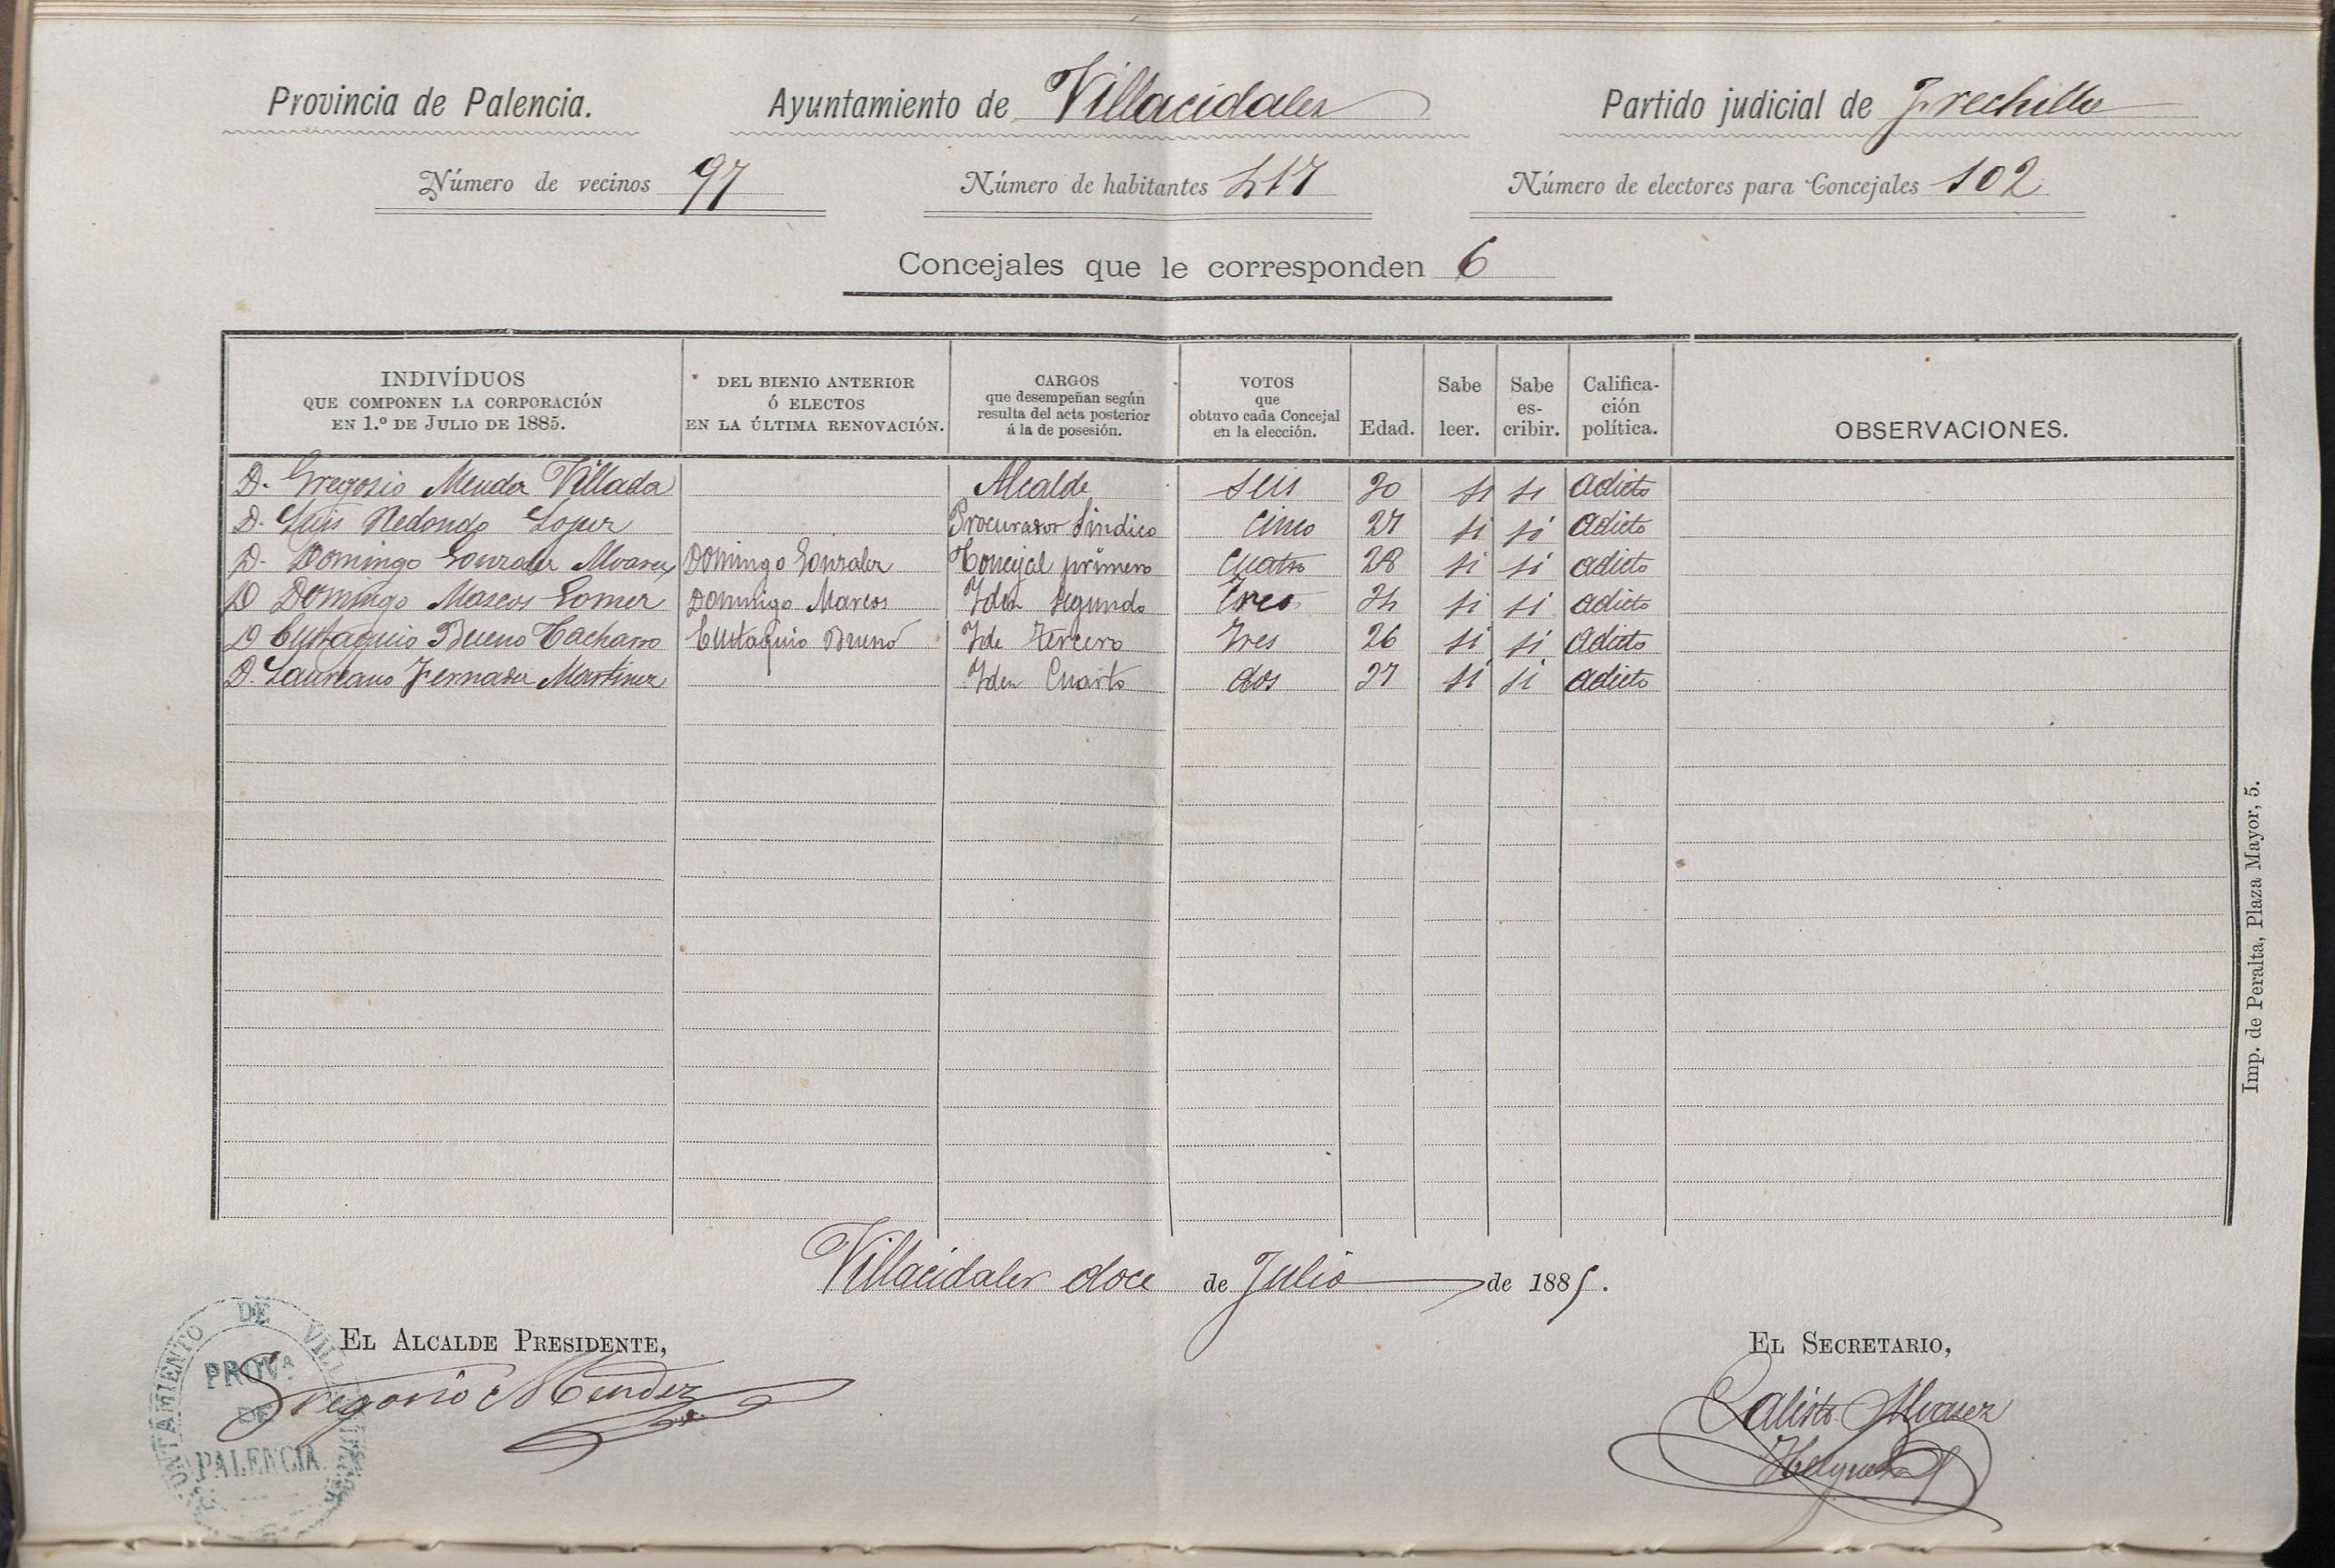 Provincia de Palencia. Ayuntamiento de Villacidaler Partido judicial de Frechilla
Número de vecinos 97 Número de habitantes 417 Número de electores para Concejales 102
Concejales que le corresponden 6
INDIVÍDUOS QUE COMPONEN LA CORPORACIÓN EN 1.º DE JULIO DE 1885.
DEL BIENIO ANTERIOR Ó ELECTOS EN LA ÚLTIMA RENOVACIÓN.
CARGOS que desempeñan según resulta del acta posterior á la de posesión.
VOTOS que obtuvo cada Concejal en la elección.
Edad.
Sabe leer.
Sabe es-cribir.
Califica-ción política.
OBSERVACIONES.
D. Gregorio Mendez Villada Alcalde seis 30 si si adicto
D. Luis Redondo Lopez Procurador Sindico Cinco 27 si si adicto
D. Domingo Gonzalez Alvarez Domingo Gonzalez Concejal primero cuatro 28 si si adicto
D Domingo Marcos Gomez Domingo Marcos Iden segundo tres 34 si si adicto
D Eustaquio Bueno Cacharro Eustaquio Bueno Ide tercero tres 26 si si adicto
D. Laureano Martinez Iden Cuarto dos 37 si si adicto
Imp. de Peralta, Plaza Mayor, 5.
Villacidaler doce de Julio de 1885.
EL ALCALDE PRESIDENTE,
Gregorio Mendez
EL SECRETARIO,
Calisto Alvarez
AYUNTAMIENTO DE
PROVA
DE
PALENCIA